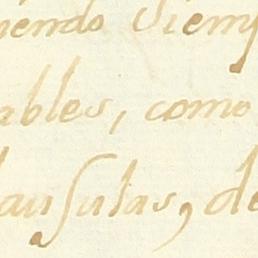 iendo siemp
ables, como
lausulas, de